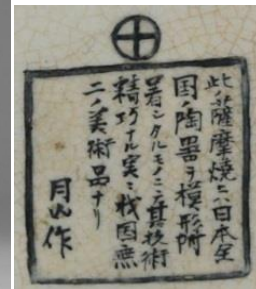 此ノ薩摩焼ハ日本全
国ノ陶器ヲ模形附
着シタルモノニ其技術
精巧ナル実ニ我国無
二ノ美術品ナリ
月山作